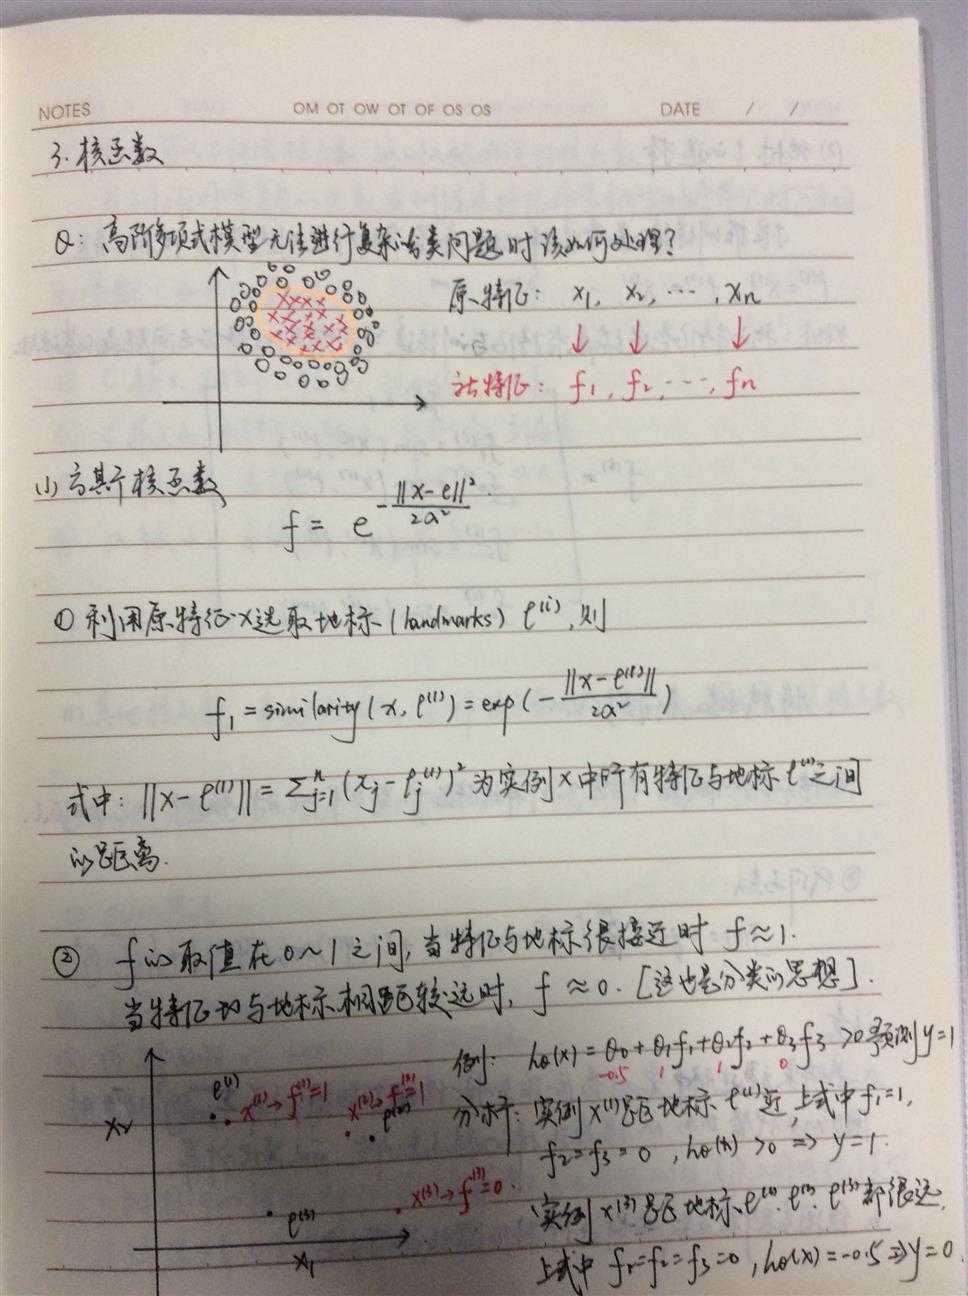 NOTES OM OT OW OT OF OS OS DATE / /
3. 核函数
Q: 高阶多项式模型无法进行复杂分类问题时该如何处理?
原特征: x₁, x₂, ⋯, xₙ
↓ ↓ ↓
新特征: f₁, f₂, ⋯, fₙ
(1) 高斯核函数
f = e^(-||x-ℓ||²/2σ²)
① 利用原特征x选取地标(landmarks) ℓ⁽ⁱ⁾, 则
f₁ = similarity(x, ℓ⁽¹⁾) = exp(-||x-ℓ⁽¹⁾||/2σ²)
式中: ||x-ℓ⁽¹⁾|| = Σⁿⱼ₌₁(xⱼ-ℓⱼ⁽¹⁾)² 为实例x中所有特征与地标ℓ⁽¹⁾之间
的距离.
② f的取值在0~1之间, 当特征与地标很接近时 f≈1.
当特征与地标相距较远时, f≈0. [这也是分类的思想].
例: hθ(x) = θ₀+θ₁f₁+θ₂f₂+θ₃f₃ >0 预测y=1
-0.5 1 1 0
分析: 实例x⁽¹⁾距地标ℓ⁽¹⁾近, 上式中f₁=1,
f₂=f₃=0, hθ(x)>0 ⇒ y=1.
实例x⁽³⁾距地标ℓ⁽¹⁾ ℓ⁽²⁾ ℓ⁽³⁾都很远,
上式中 f₁=f₂=f₃=0, hθ(x)=-0.5 ⇒ y=0
x₂
ℓ⁽¹⁾
x⁽¹⁾→f⁽¹⁾=1
x⁽²⁾→f⁽²⁾=1
ℓ⁽²⁾
x⁽³⁾→f⁽³⁾=0.
ℓ⁽³⁾
x₁